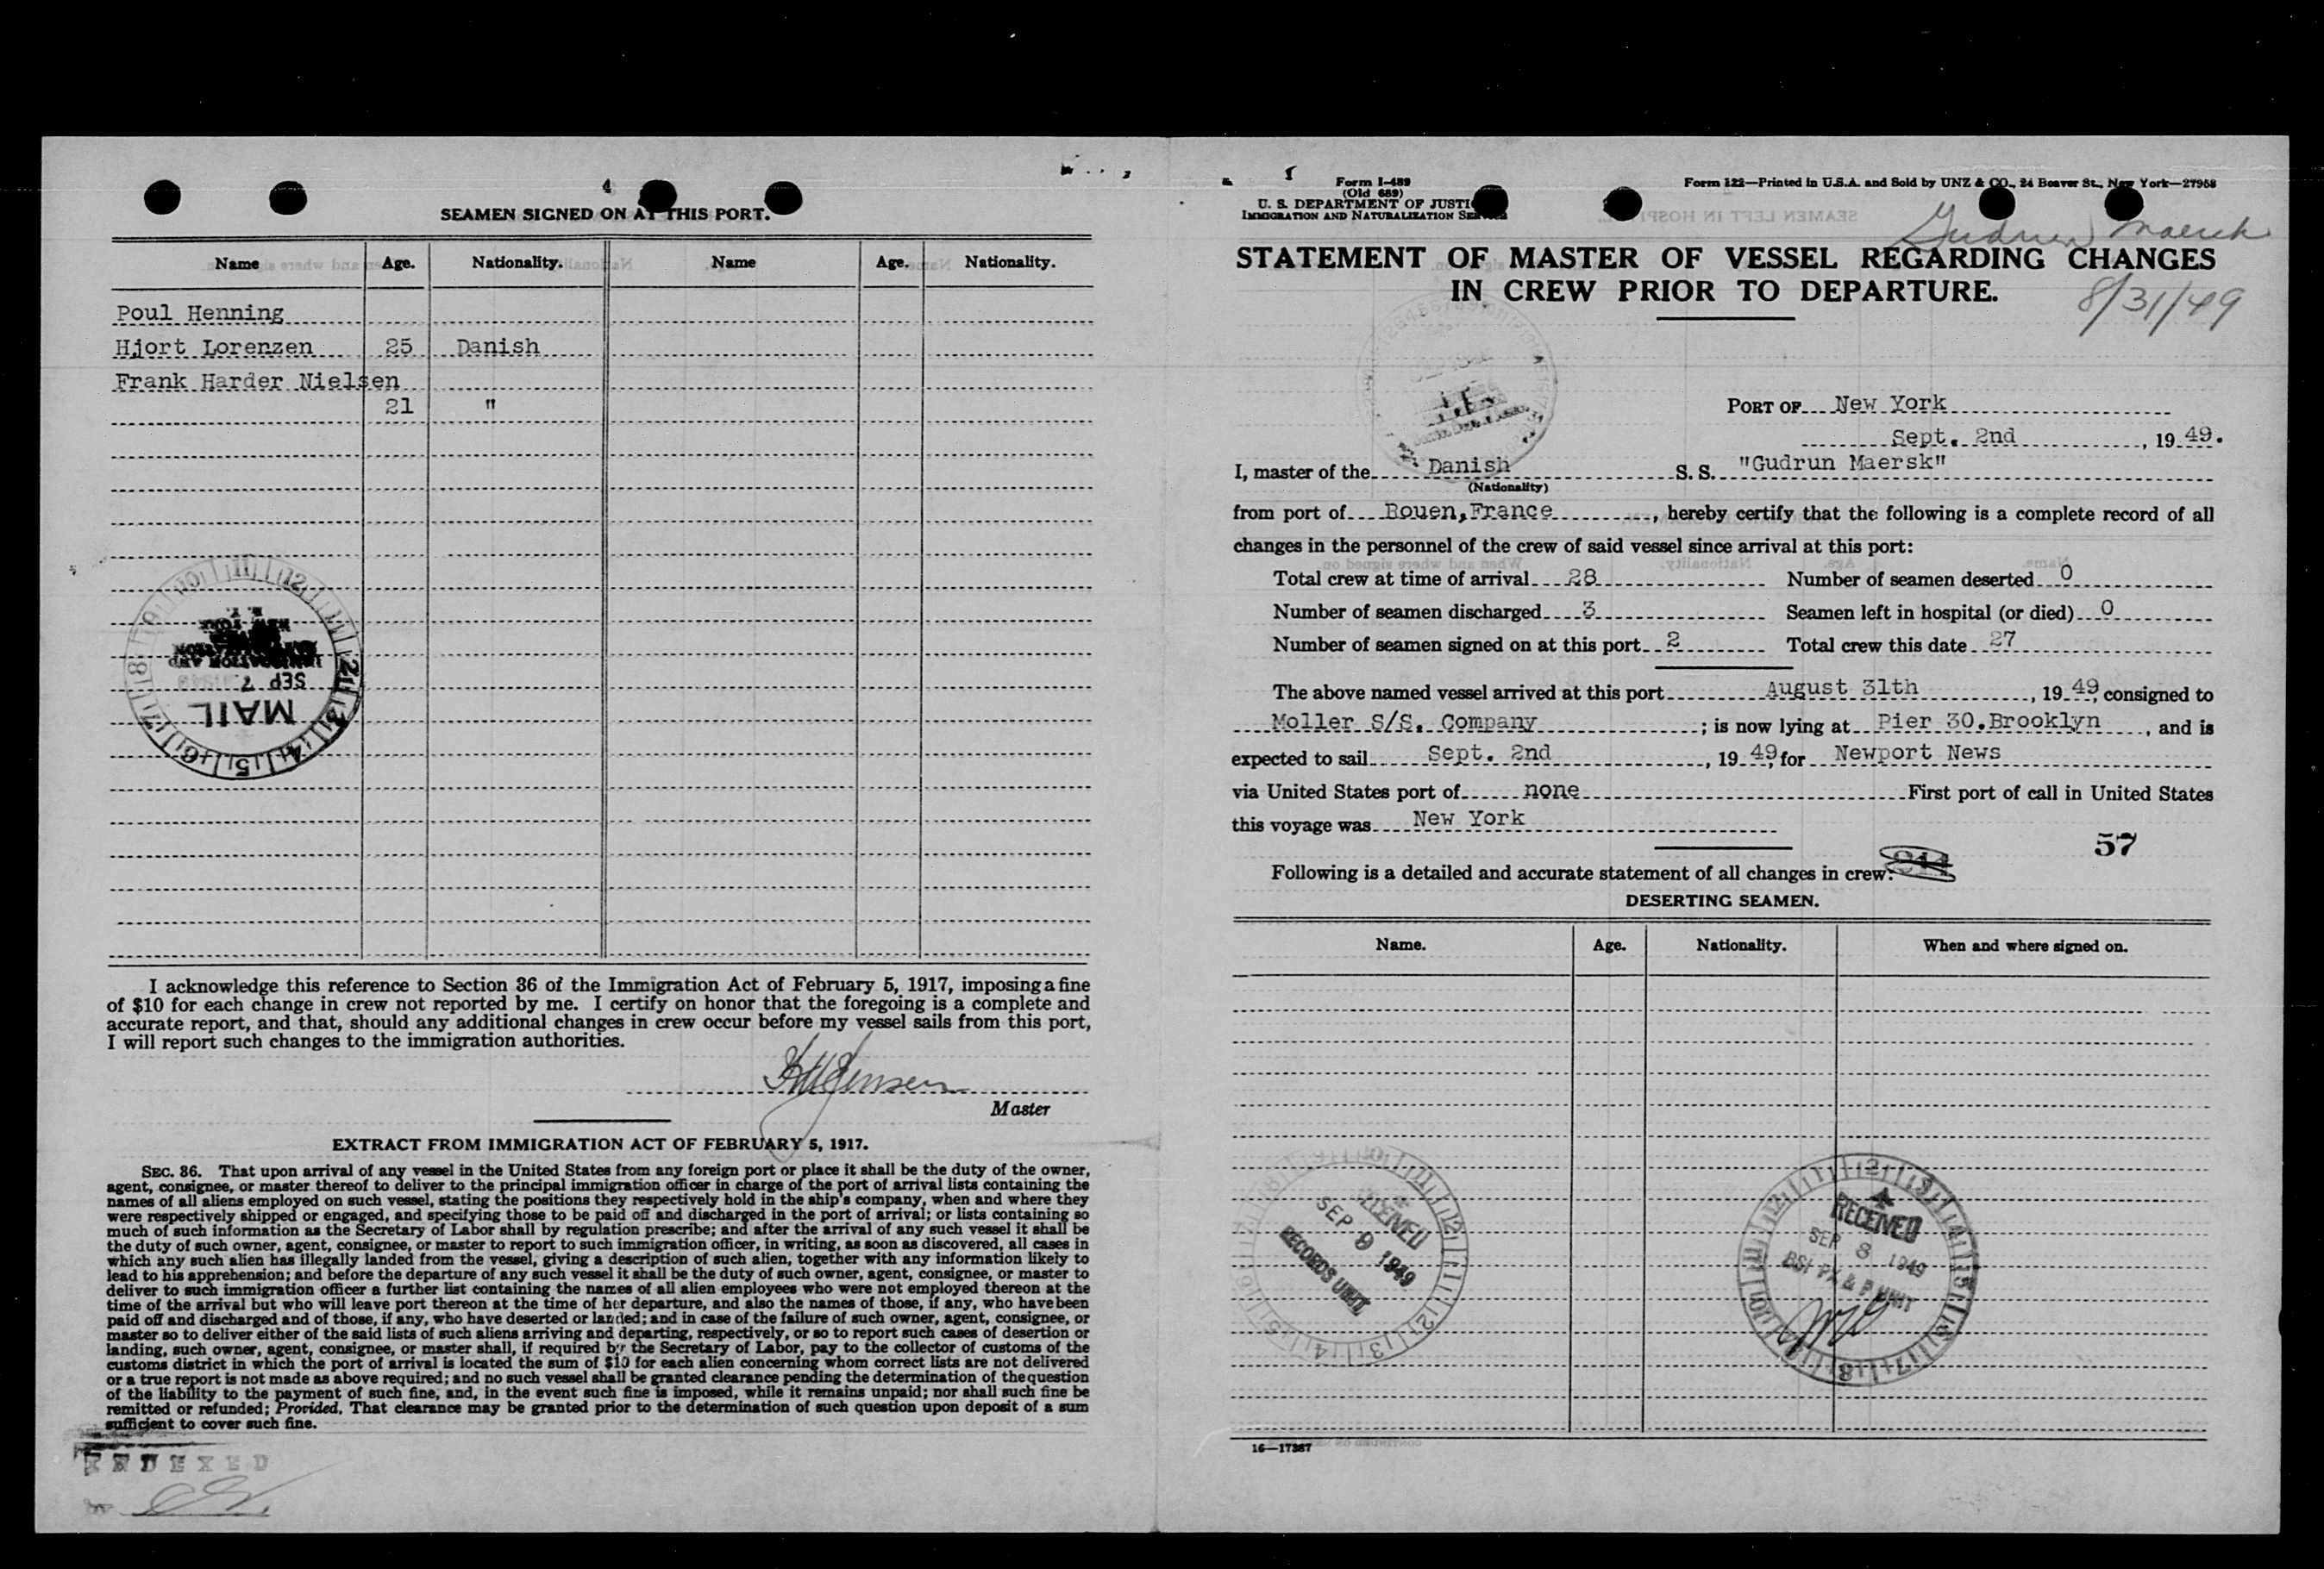 4
SEAMEN SIGNED ON AT THIS PORT.
Name Age. Nationality. Name Age. Nationality.
Poul Henning
Hjort Lorenzen 25 Danish
Frank Harder Nielsen
21 "
MAIL
SEP 7
IMMIGRATION AND
I acknowledge this reference to Section 36 of the Immigration Act of February 5, 1917, imposing a fine
of $10 for each change in crew not reported by me. I certify on honor that the foregoing is a complete and
accurate report, and that, should any additional changes in crew occur before my vessel sails from this port,
I will report such changes to the immigration authorities.
Jensen
Master
EXTRACT FROM IMMIGRATION ACT OF FEBRUARY 5, 1917.
SEC. 36. That upon arrival of any vessel in the United States from any foreign port or place it shall be the duty of the owner,
agent, consignee, or master thereof to deliver to the principal immigration officer in charge of the port of arrival lists containing the
names of all aliens employed on such vessel, stating the positions they respectively hold in the ship's company, when and where they
were respectively shipped or engaged, and specifying those to be paid off and discharged in the port of arrival; or lists containing so
much of such information as the Secretary of Labor shall by regulation prescribe; and after the arrival of any such vessel it shall be
the duty of such owner, agent, consignee, or master to report to such immigration officer, in writing, as soon as discovered, all cases in
which any such alien has illegally landed from the vessel, giving a description of such alien, together with any information likely to
lead to his apprehension; and before the departure of any such vessel it shall be the duty of such owner, agent, consignee, or master to
deliver to such immigration officer a further list containing the names of all alien employees who were not employed thereon at the
time of the arrival but who will leave port thereon at the time of her departure, and also the names of those, if any, who have been
paid off and discharged and of those, if any, who have deserted or landed; and in case of the failure of such owner, agent, consignee, or
master so to deliver either of the said lists of such aliens arriving and departing, respectively, or so to report such cases of desertion or
landing, such owner, agent, consignee, or master shall, if required by the Secretary of Labor, pay to the collector of customs of the
customs district in which the port of arrival is located the sum of $10 for each alien concerning whom correct lists are not delivered
or a true report is not made as above required; and no such vessel shall be granted clearance pending the determination of the question
of the liability to the payment of such fine, and, in the event such fine is imposed, while it remains unpaid; nor shall such fine be
remitted or refunded; Provided, That clearance may be granted prior to the determination of such question upon deposit of a sum
sufficient to cover such fine.
INDEXED
Form I-489
(Old 689)
U. S. DEPARTMENT OF JUSTI
IMMIGRATION AND NATURALIZATION SE
Form 122—Printed in U.S.A. and Sold by UNZ & CO., 24 Beaver St., New York—27958
Gudrun Maersk
STATEMENT OF MASTER OF VESSEL REGARDING CHANGES
IN CREW PRIOR TO DEPARTURE.
8/31/49
PORT OF New York
Sept. 2nd, 19 49.
I, master of the Danish S. S. "Gudrun Maersk"
(Nationality)
from port of Rouen, France, hereby certify that the following is a complete record of all
changes in the personnel of the crew of said vessel since arrival at this port:
Total crew at time of arrival 28 Number of seamen deserted 0
Number of seamen discharged 3 Seamen left in hospital (or died) 0
Number of seamen signed on at this port 2 Total crew this date 27
The above named vessel arrived at this port August 31th, 19 49, consigned to
Moller S/S. Company; is now lying at Pier 30.Brooklyn, and is
expected to sail Sept. 2nd, 19 49, for Newport News
via United States port of none First port of call in United States
this voyage was New York
57
Following is a detailed and accurate statement of all changes in crew:
DESERTING SEAMEN.
Name. Age. Nationality. When and where signed on.
RECEIVED
SEP 9 1949
RECORDS UNIT
RECEIVED
SEP 8 1949
BSI PX & P UNIT
16—17387